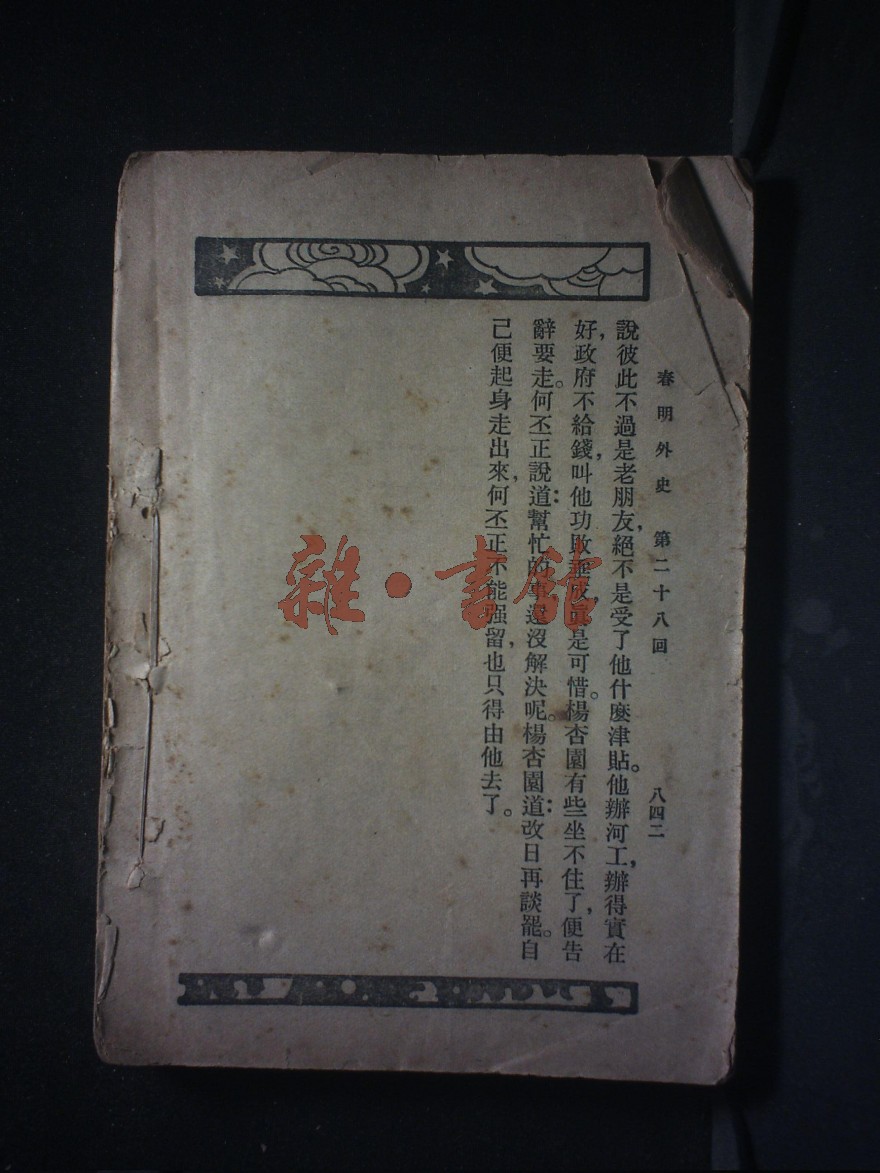 春明外史　第二十八回　八四二
說彼此不過是老朋友，絕不是受了他什麼津貼。他辦河工，辦得實在
好，政府不給錢，叫他功敗垂成，眞是可惜。楊杏園有些坐不住了，便告
辭要走。何丕正說道：幫忙的事還沒解決呢。楊杏園道：改日再談罷。自
己便起身走出來，何丕正不能强留，也只得由他去了。
雜·書館